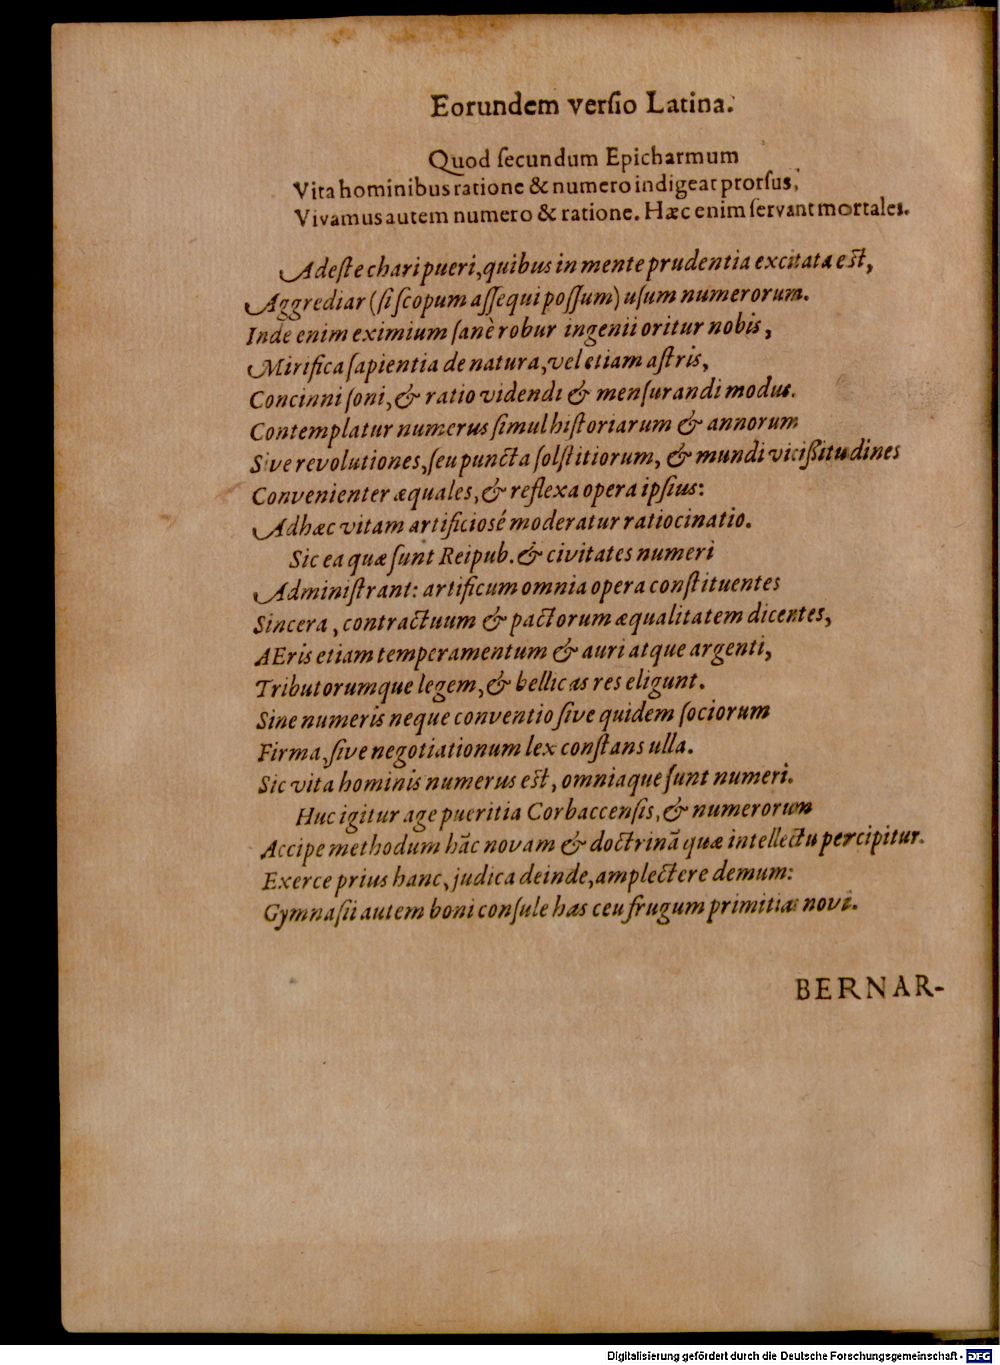 Eorundem verſio Latina.
Quod ſecundum Epicharmum
Vita hominibus ratione & numero indigeat prorſus,
Vivamus autem numero & ratione. Hæc enim ſervant mortales.
Adeſte chari pueri, quibus in mente prudentia excitata eſt,
Aggrediar (ſi ſcopum aſſequi poſſum) uſum numerorum.
Inde enim eximium ſanè robur ingenii oritur nobis,
Mirifica ſapientia de natura, vel etiam aſtris,
Concinni ſoni, & ratio videndi & menſurandi modus.
Contemplatur numerus ſimul hiſtoriarum & annorum
Sive revolutiones, ſeu puncta ſolſtitiorum, & mundi viciſſitudines
Convenienter æquales, & reflexa opera ipſius:
Ad hæc vitam artificioſé moderatur ratiocinatio.
Sic ea quæ ſunt Reipub. & civitates numeri
Adminiſtrant: artificum omnia opera conſtituentes
Sincera, contractuum & pactorum æqualitatem dicentes,
AEris etiam temperamentum & auri atque argenti,
Tributorumque legem, & bellicas res eligunt.
Sine numeris neque conventio ſive quidem ſociorum
Firma, ſive negotiationum lex conſtans ulla.
Sic vita hominis numerus eſt, omniaque ſunt numeri.
Huc igitur age pueritia Corbaccenſis, & numerorum
Accipe methodum hāc novam & doctrinā quæ intellectu percipitur.
Exerce prius hanc, judica deinde, amplectere demum:
Gymnaſii autem boni conſule has ceu frugum primitias novi.
BERNAR-
Digitalisierung gefördert durch die Deutsche Forschungsgemeinschaft - DFG